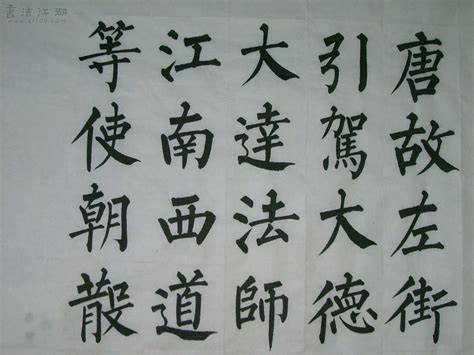 唐故左街
引駕大德
大達法師
江南西道
等使朝散
書法江湖